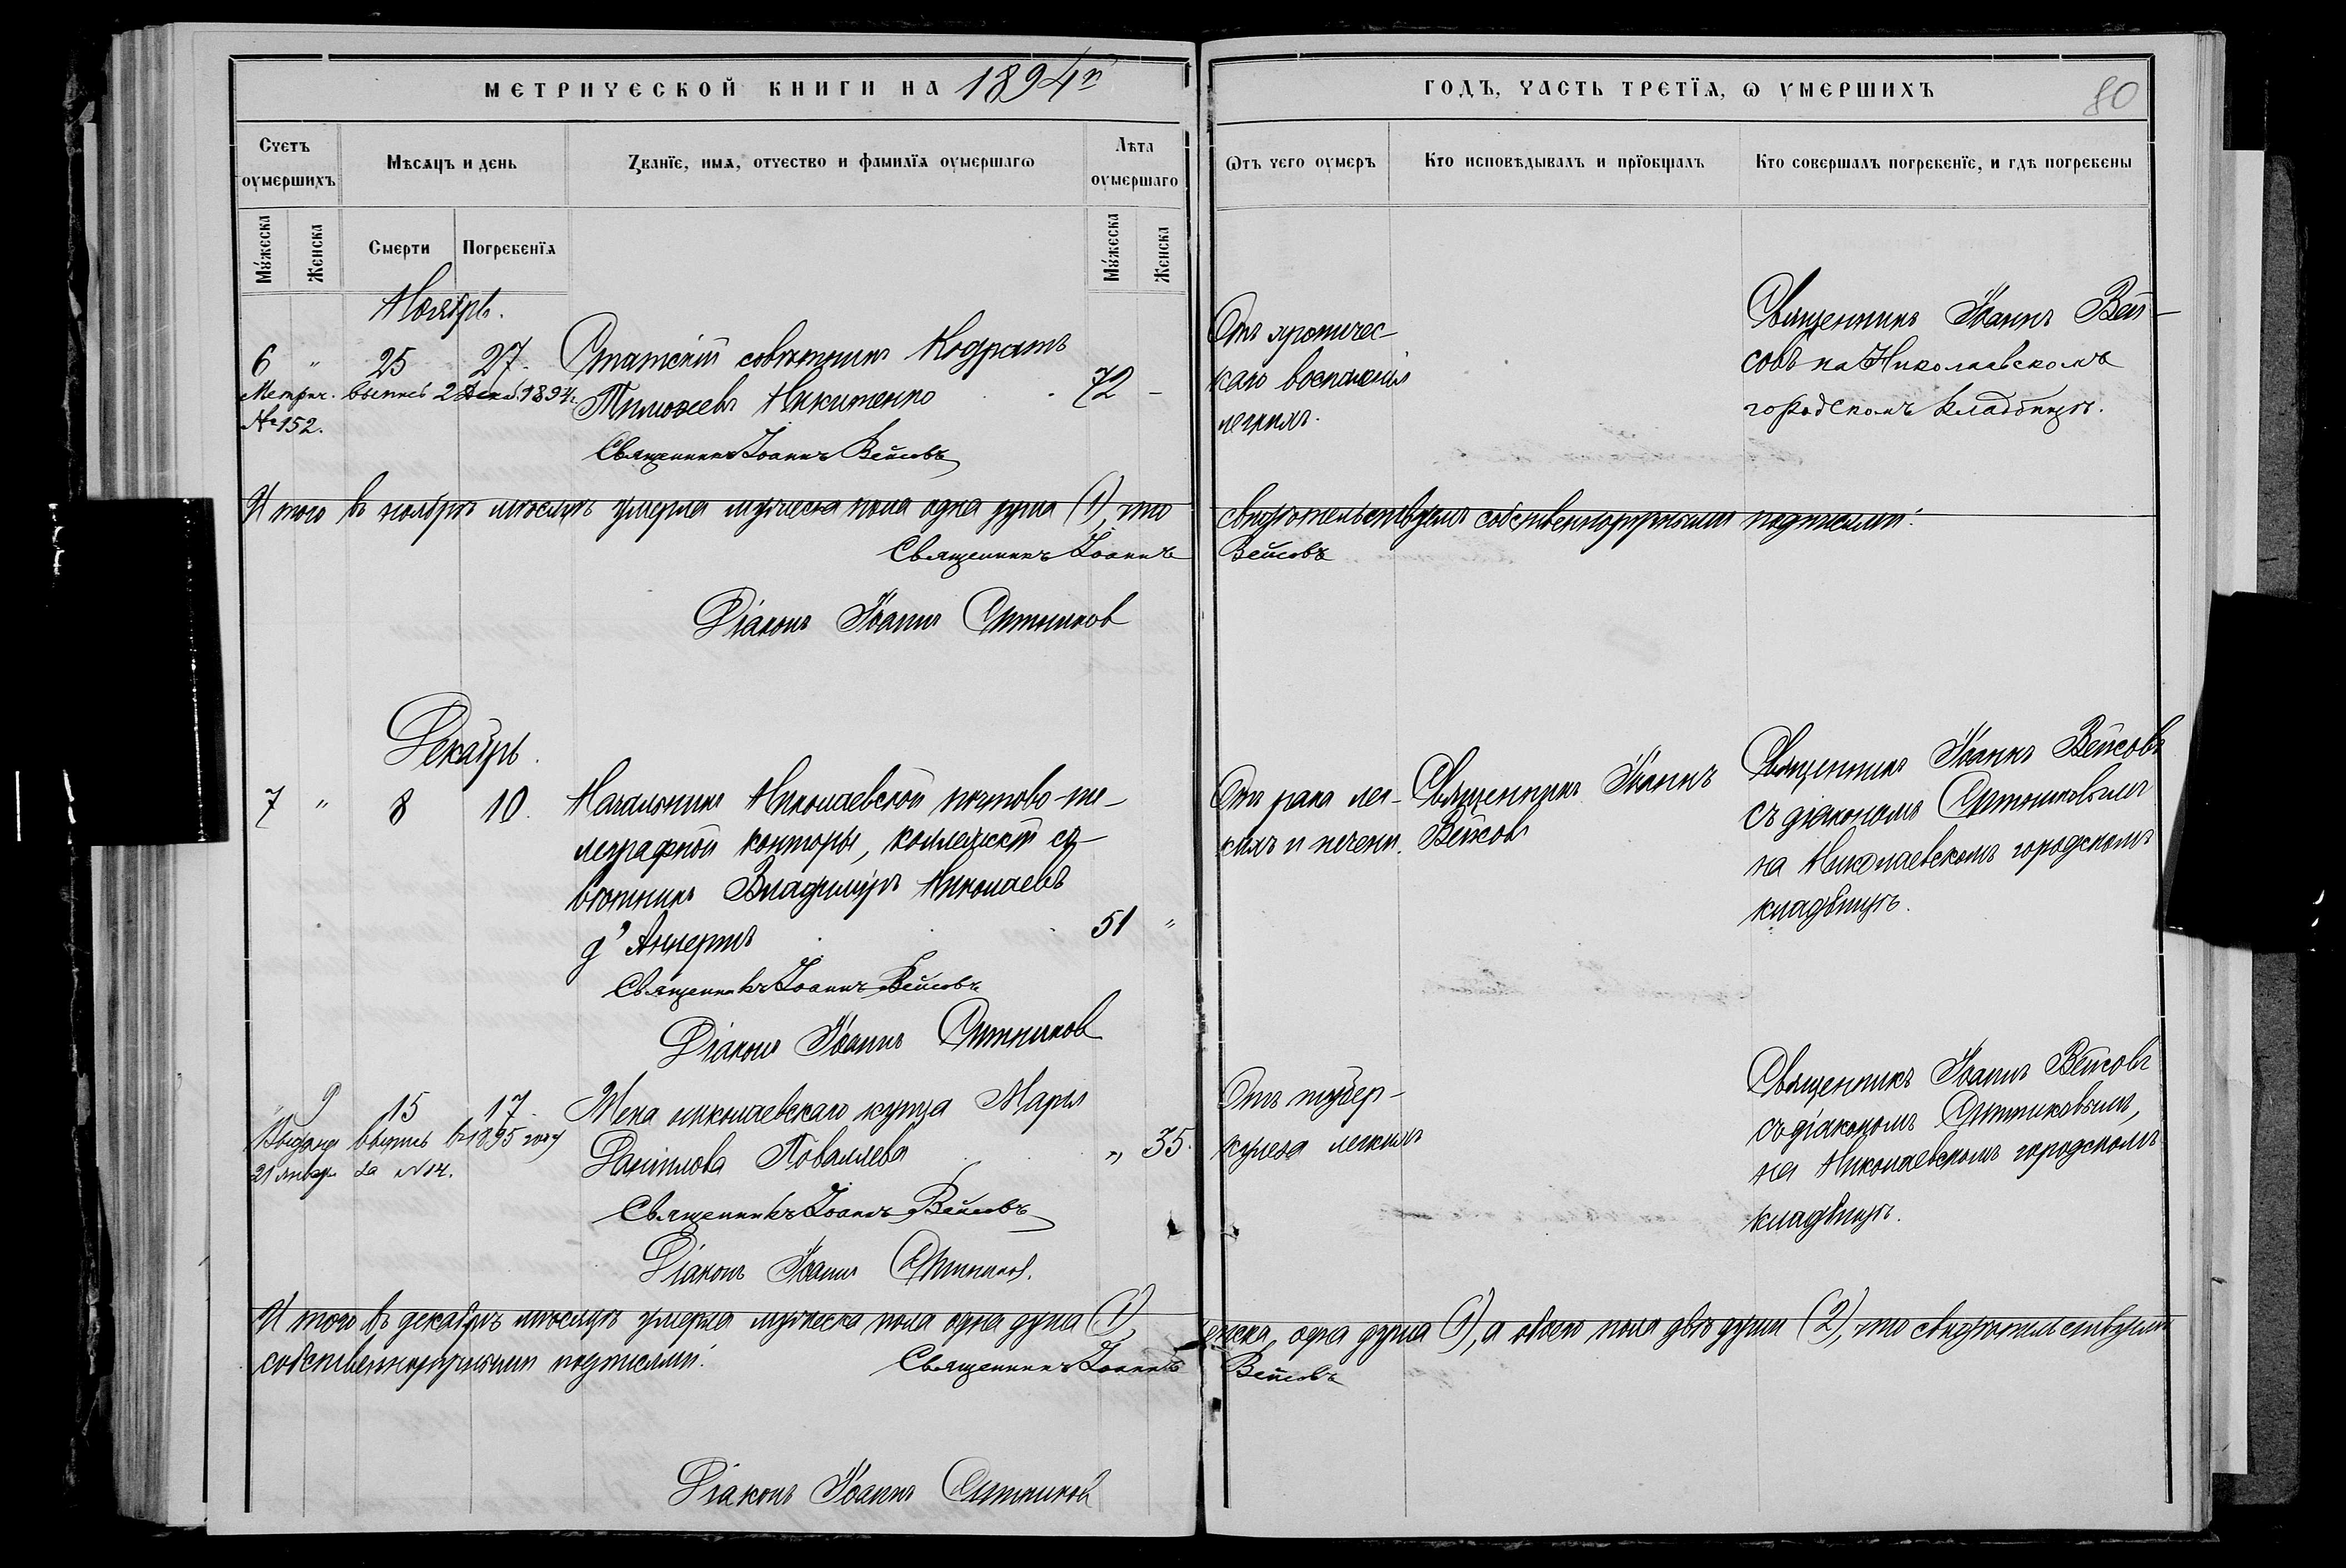 МЕТРИЧЕСКОЙ КНИГИ НА 1894й
ГОДЪ, ЧАСТЬ ТРЕТЇѦ, Ѡ УМЕРШИХЪ
80
Счетъ оумершихъ
Мѣсѧцъ и день
Званїе, имѧ, отчество и фамилїѧ оумершагѡ
Лѣта оумершаго
Ѿтъ чего оумеръ
Кто исповѣдывалъ и прїобщалъ
Кто совершалъ погребенїе, и гдѣ погребены
Мꙋжеска
Женска
Смерти
Погребенїѧ
Мꙋжеска
Женска
Ноябрь.
6 " 25 27. Статскій совѣтникъ Кодратъ
Метрич. выпись 2 Декаб. 1894г.
Тимоѳеевъ Никитенко 72 -
№ 152.
Священникъ Іоаннъ Вейсовъ
Отъ хроничес-
каго воспаленія
легкихъ.
Священникъ Іоаннъ Вей-
совъ на Николаевскомъ
городскомъ кладбищѣ.
И того въ ноябрѣ мѣсяцѣ умерла мужеска пола одна душа (1), что
свидѣтельствуемъ собственноручными подписями:
Священникъ Іоаннъ
Вейсовъ
Діаконъ Іоаннъ Ситников
Декабрь.
7 " 8 10. Начальникъ Николаевской почтово-те-
леграфной конторы, коллежскій со-
вѣтникъ Владиміръ Николаевъ
д'Аннертъ 51 "
Священникъ Іоаннъ Вейсовъ
Діаконъ Іоаннъ Ситников
Отъ рака лег-
кихъ и печени.
Священникъ Іоаннъ
Вейсовъ
Священникъ Іоаннъ Вейсовъ
съ діакономъ Ситниковымъ
на Николаевскомъ городскомъ
кладбищѣ.
" 9 15 17. Жена николаевскаго купца Марія
Выдана выпись въ 1895 году
Даніилова Ковалева " 35.
21 январ. за №14.
Священникъ Іоаннъ Вейсовъ
Діаконъ Іоаннъ Ситников.
Отъ тубер-
кулеза легкихъ
Священникъ Іоаннъ Вейсовъ
съ діакономъ Ситниковымъ,
на Николаевскомъ городскомъ
кладбищѣ.
И того въ декабрѣ мѣсяцѣ умерла мужеска пола одна душа (1),
женска, одна душа (1), а обоего пола двѣ души (2), что свидѣтельствуемъ
собственноручными подписями:
Священникъ Іоаннъ
Вейсовъ
Діаконъ Іоаннъ Ситников